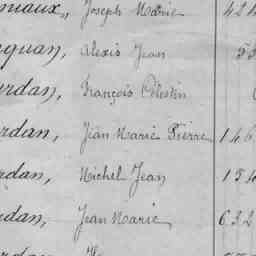 niaux, Joseph Marie 424
quan, Alexis Jean 5
rdan, François Célestin
rdan, Jean Marie Pierre 146
rdan, Michel Jean 154
rdan, Jean Marie 632